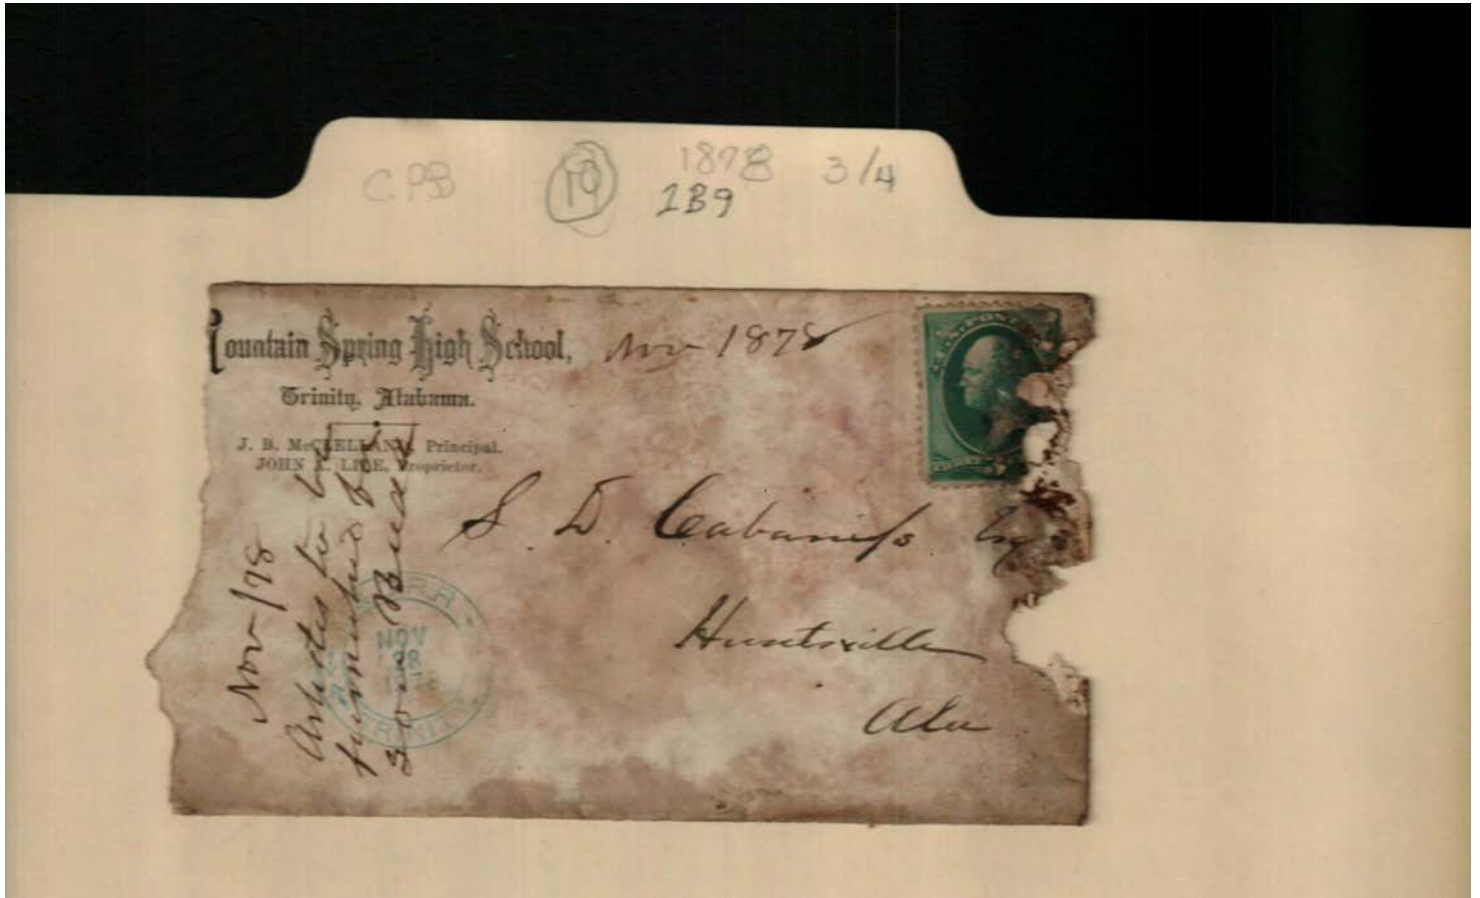 CPB 19 1878 3/4
2B9
ountain Spring High School, Nov 1878
Trinity, Alabama.
J. B. McCLELLAN, Principal.
JOHN A. LILE, Proprietor.
S. D. Cabaniss Esq
Huntsville
Ala
Nov /78
Articles to be
furnished for
NOV
28
TRINITY